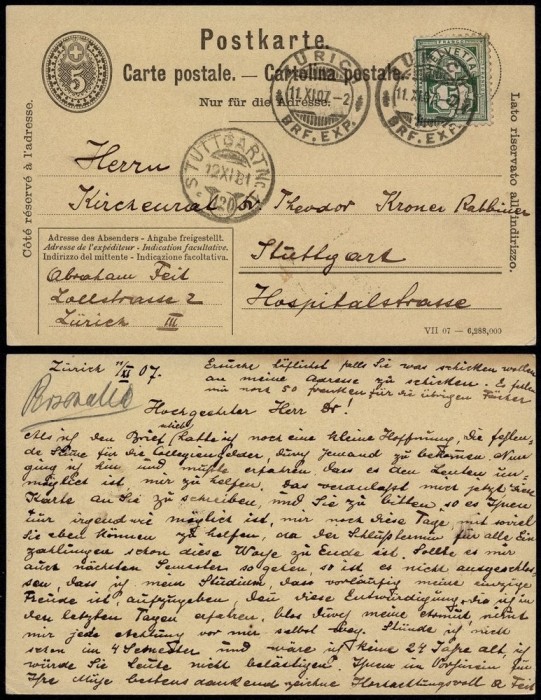 Postkarte.
Carte postale. — Cartolina postale.
Nur für die Adresse.
5
Côté réservé à l'adresse.
Lato riservato all'indirizzo.
ZÜRICH
11.XI.07.-2
BRF. EXP.
ZÜRICH
11.XI.07
BRF. EXP.
STUTTGART No
12 XI 8-1
20
Herrn
Kirchenrat Dr Theodor Kroner Rabbiner
Stuttgart
Hospitalstrasse
Adresse des Absenders - Angabe freigestellt.
Adresse de l'expéditeur - Indication facultative.
Indirizzo del mittente - Indicazione facoltativa.
Abraham Feit
Zollstrasse 2
Zürich III
VII 07 — 6,288,000
Zürich 11/XI 07.
Ersuche höflichst falls Sie was schicken wollen
an meine Adresse zu schicken. Es fehlen
mir noch 50 franken für die übrigen Fächer
Hochgeehrter Herr Dr!
Als ich den Brief hatte ich noch eine kleine Hoffnung, die fehlen
de Sume für die Collegiengelder, durch jemand zu bekommen. Nun
ging ich hin und mußte erfahren, dass es den Leuten un-
möglich ist, mir zu helfen. Das veranlasst mich jetzt diese
Karte an Sie zu schreiben, und Sie zu bitten, so es Ihnen
nur irgendwie möglich ist, mir noch diese Tage, mit wieviel
Sie eben können zu helfen, da der Schlußtermin für alle Ein
zahlungen schon diese Woche zu Ende ist. Sollte es mir
auch nächsten Semester so gehen, so ist es nicht ausgeschlos-
sen, dass ich mein Studium, dass vorläufig meine einzige
Freude ist, aufzugeben, den diese Entwürdigung, die ich in
den letzten Tagen erfahren, blos durch meine Armut, nimt
mir jede Achtung vor mir selbst weg. Stünde ich nicht
schon im 4 Semester und wäre ich keine 24 Jahre alt, ich
würde Sie Leute nicht belästigen. Ihnen im Vorhinein für
Ihre Mühe bestens dankend zeichne Hochachtungsvoll A Feit